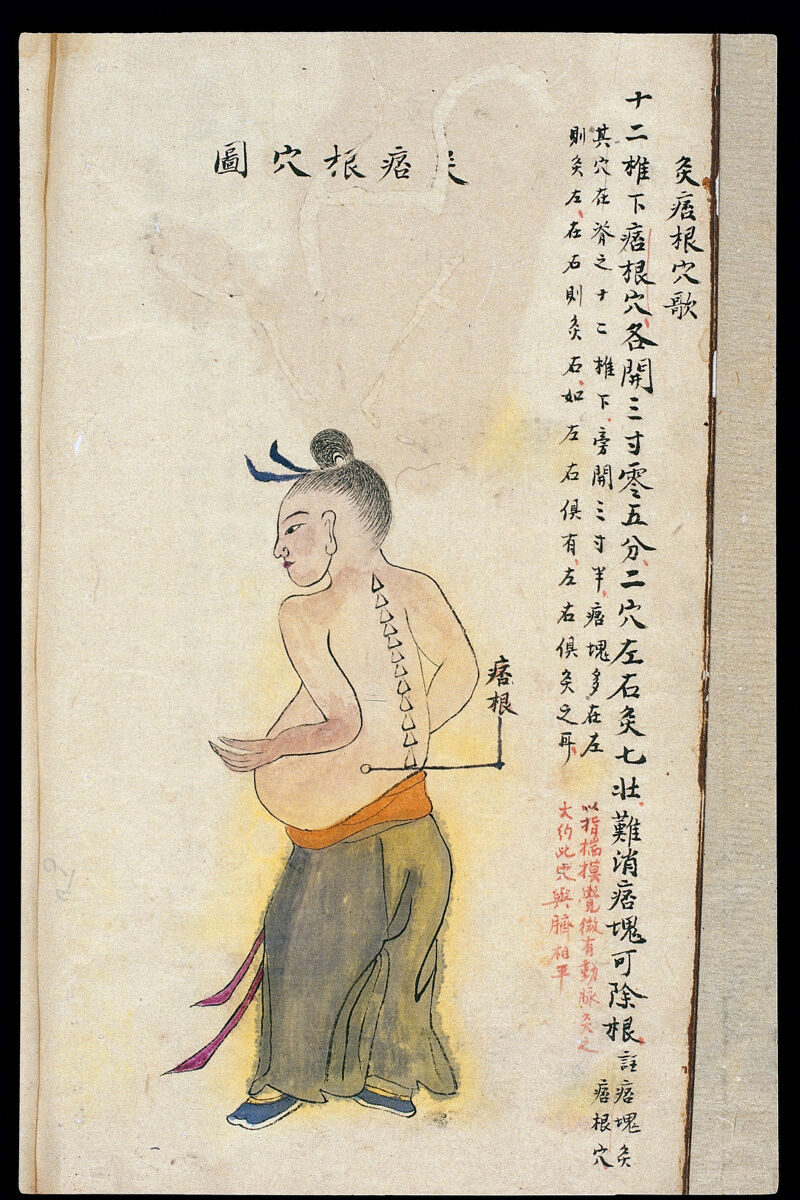 灸痞根穴歌
十二椎下痞根穴各開三寸零五分二穴左右灸七壯難消痞塊可除根註痞塊灸
痞根穴
其穴在脊之十二椎下旁開三寸半痞塊多在左
則灸左在右則灸右如左右俱有左右俱灸之耳
以指揣摸覺微有動脉灸之
大約此穴與臍相平
灸痞根穴圖
痞根